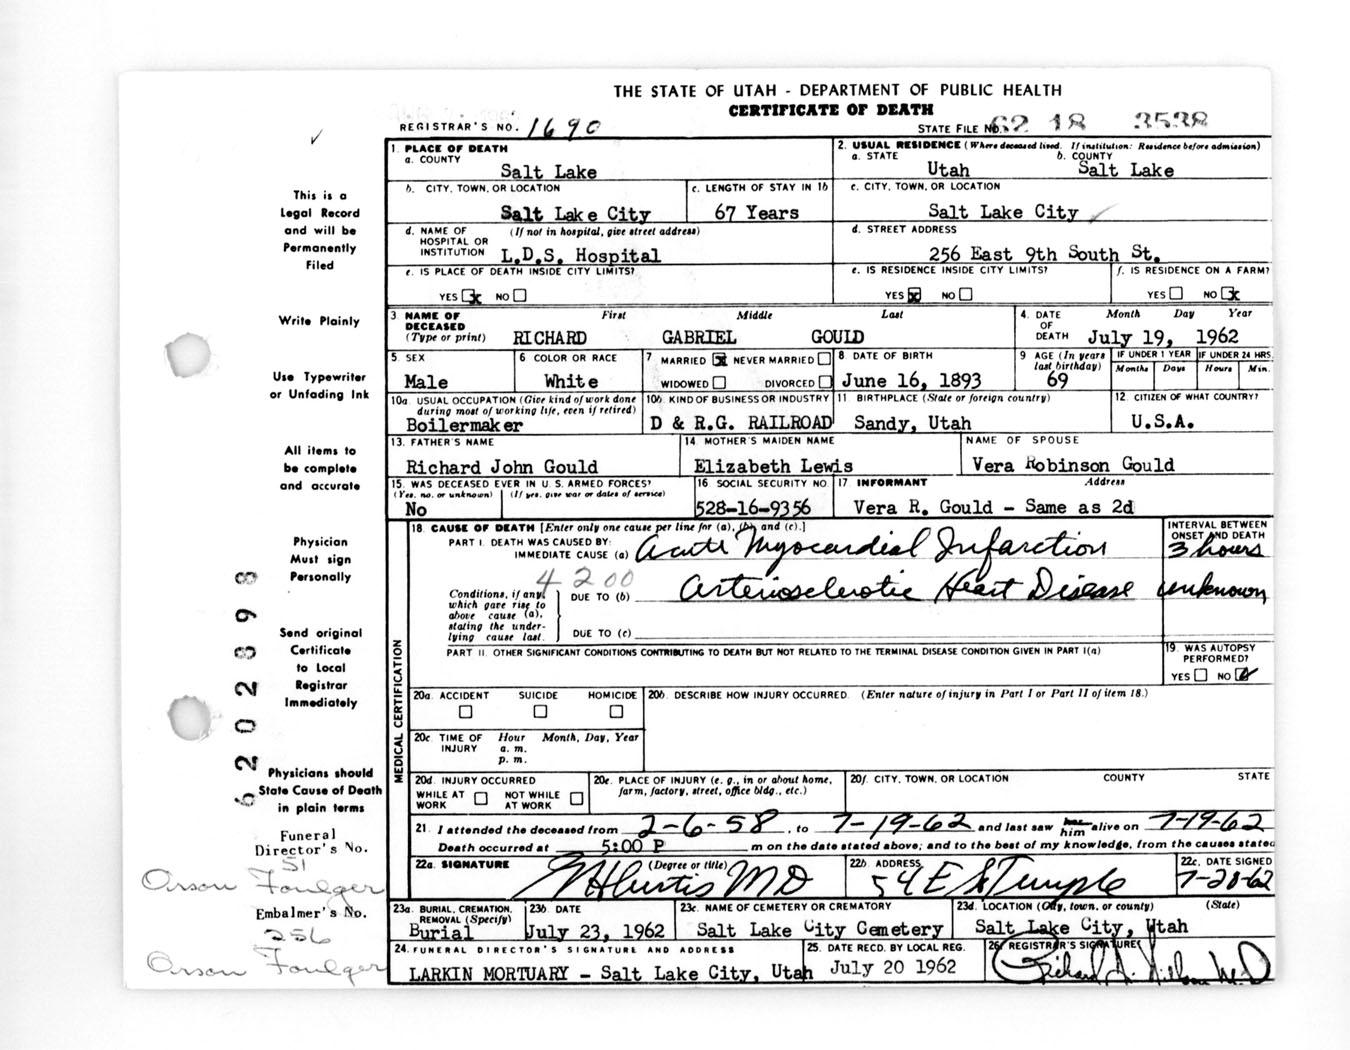 THE STATE OF UTAH - DEPARTMENT OF PUBLIC HEALTH
CERTIFICATE OF DEATH
REGISTRAR'S NO. 1690
STATE FILE NO. 62 18 3538
1. PLACE OF DEATH
a. COUNTY
Salt Lake
2. USUAL RESIDENCE (Where deceased lived. If institution: Residence before admission)
a. STATE
Utah
b. COUNTY
Salt Lake
b. CITY, TOWN, OR LOCATION
Salt Lake City
c. LENGTH OF STAY IN 1b
67 Years
c. CITY, TOWN, OR LOCATION
Salt Lake City
d. NAME OF HOSPITAL OR INSTITUTION (If not in hospital, give street address)
L.D.S. Hospital
d. STREET ADDRESS
256 East 9th South St.
e. IS PLACE OF DEATH INSIDE CITY LIMITS?
YES x NO
e. IS RESIDENCE INSIDE CITY LIMITS?
YES x NO
f. IS RESIDENCE ON A FARM?
YES NO x
3. NAME OF DECEASED (Type or print)
First Middle Last
RICHARD GABRIEL GOULD
4. DATE OF DEATH Month Day Year
July 19, 1962
5. SEX
Male
6 COLOR OR RACE
White
7 MARRIED x NEVER MARRIED
WIDOWED DIVORCED
8 DATE OF BIRTH
June 16, 1893
9 AGE (In years last birthday)
69
IF UNDER 1 YEAR
Months Days
IF UNDER 24 HRS.
Hours Min.
10a. USUAL OCCUPATION (Give kind of work done during most of working life, even if retired)
Boilermaker
10b. KIND OF BUSINESS OR INDUSTRY
D & R.G. RAILROAD
11 BIRTHPLACE (State or foreign country)
Sandy, Utah
12. CITIZEN OF WHAT COUNTRY?
U.S.A.
13. FATHER'S NAME
Richard John Gould
14 MOTHER'S MAIDEN NAME
Elizabeth Lewis
NAME OF SPOUSE
Vera Robinson Gould
15. WAS DECEASED EVER IN U. S. ARMED FORCES?
(Yes, no, or unknown) (If yes, give war or dates of service)
No
16. SOCIAL SECURITY NO.
528-16-9356
17. INFORMANT Address
Vera R. Gould - Same as 2d
18. CAUSE OF DEATH [Enter only one cause per line for (a), (b) and (c).]
PART I. DEATH WAS CAUSED BY:
IMMEDIATE CAUSE (a) Acute Myocardial Infarction
INTERVAL BETWEEN ONSET AND DEATH
3 hours
4200
Conditions, if any, which gave rise to above cause (a), stating the underlying cause last.
DUE TO (b) Arteriosclerotic Heart Disease unknown
DUE TO (c)
PART II. OTHER SIGNIFICANT CONDITIONS CONTRIBUTING TO DEATH BUT NOT RELATED TO THE TERMINAL DISEASE CONDITION GIVEN IN PART I(a)
19. WAS AUTOPSY PERFORMED?
YES NO
MEDICAL CERTIFICATION
20a. ACCIDENT SUICIDE HOMICIDE
20b. DESCRIBE HOW INJURY OCCURRED. (Enter nature of injury in Part I or Part II of item 18.)
20c. TIME OF INJURY Hour Month, Day, Year
a. m.
p. m.
20d. INJURY OCCURRED
WHILE AT WORK NOT WHILE AT WORK
20e. PLACE OF INJURY (e. g., in or about home, farm, factory, street, office bldg., etc.)
20f. CITY, TOWN, OR LOCATION COUNTY STATE
21. I attended the deceased from 2-6-58, to 7-19-62 and last saw her him alive on 7-19-62
Death occurred at 5:00 P m on the date stated above; and to the best of my knowledge, from the causes stated
22a. SIGNATURE (Degree or title)
Curtis MD
22b. ADDRESS
54 E So Temple
22c. DATE SIGNED
7-20-62
23a. BURIAL, CREMATION, REMOVAL (Specify)
Burial
23b. DATE
July 23, 1962
23c. NAME OF CEMETERY OR CREMATORY
Salt Lake City Cemetery
23d. LOCATION (City, town, or county) (State)
Salt Lake City, Utah
24. FUNERAL DIRECTOR'S SIGNATURE AND ADDRESS
LARKIN MORTUARY - Salt Lake City, Utah
25. DATE RECD. BY LOCAL REG.
July 20 1962
26 REGISTRAR'S SIGNATURE
Richard M.D
This is a
Legal Record
and will be
Permanently
Filed
Write Plainly
Use Typewriter
or Unfading Ink
All items to
be complete
and accurate
Physician
Must sign
Personally
Send original
Certificate
to Local
Registrar
Immediately
Physicians should
State Cause of Death
in plain terms
Funeral
Director's No.
51
Orson Foulger
Embalmer's No.
256
Orson Foulger